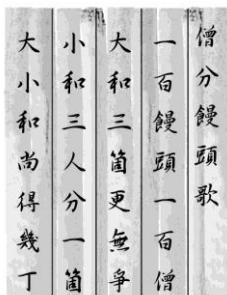 僧分饅頭歌
一百饅頭一百僧
大和三箇更無爭
小和三人分一箇
大小和尚得幾丁